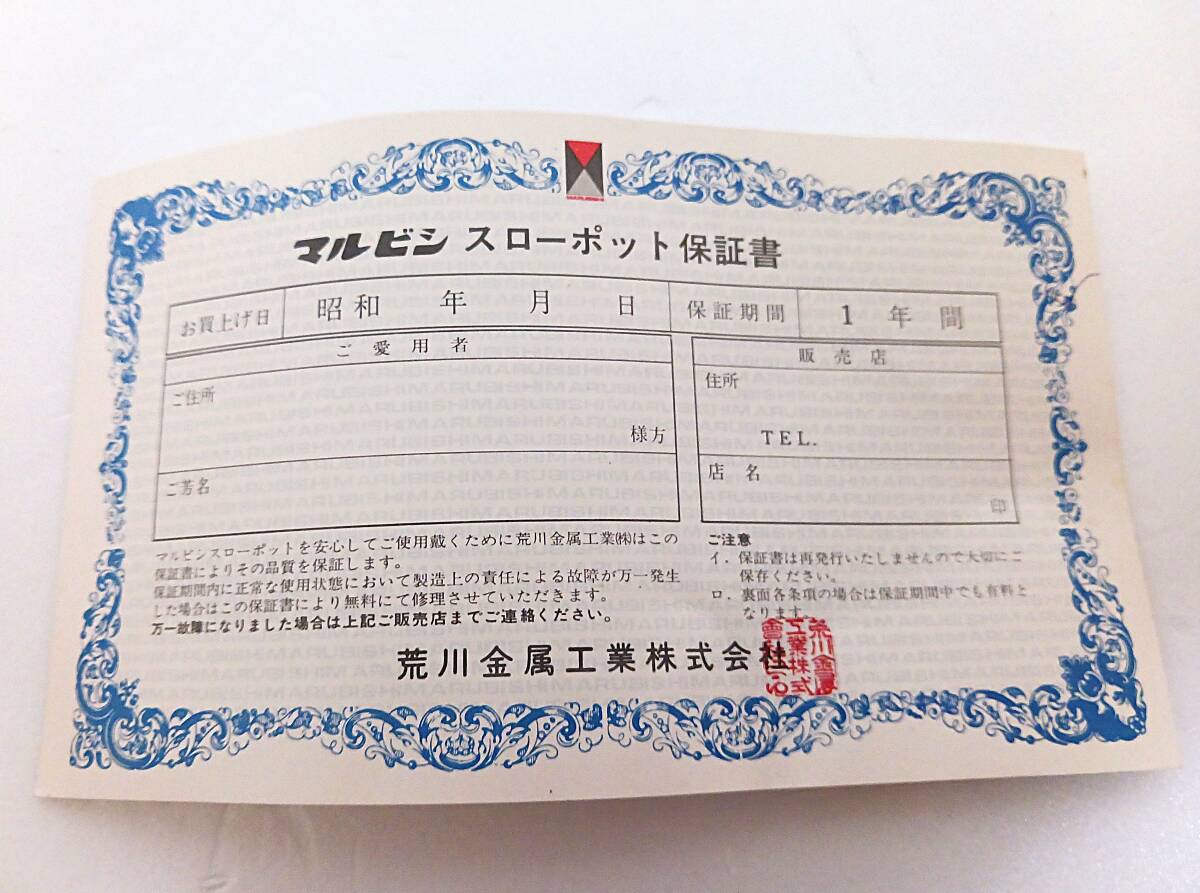 マルビシ スローポット保証書
お買上げ日 昭和 年 月 日 保証期間 1 年 間
ご 愛 用 者
ご住所
様方
ご芳名
販 売 店
住所
TEL.
店 名
印
マルビシスローポットを安心してご使用戴くために荒川金属工業㈱はこの
保証書によりその品質を保証します。
保証期間内に正常な使用状態において製造上の責任による故障が万一発生
した場合はこの保証書により無料にて修理させていただきます。
万一故障になりました場合は上記ご販売店までご連絡ください。
ご注意
イ．保証書は再発行いたしませんので大切にご
保存ください。
ロ．裏面各条項の場合は保証期間中でも有料と
なります。
荒川金属工業株式会社
荒川金属
工業株式
MARUBISHI